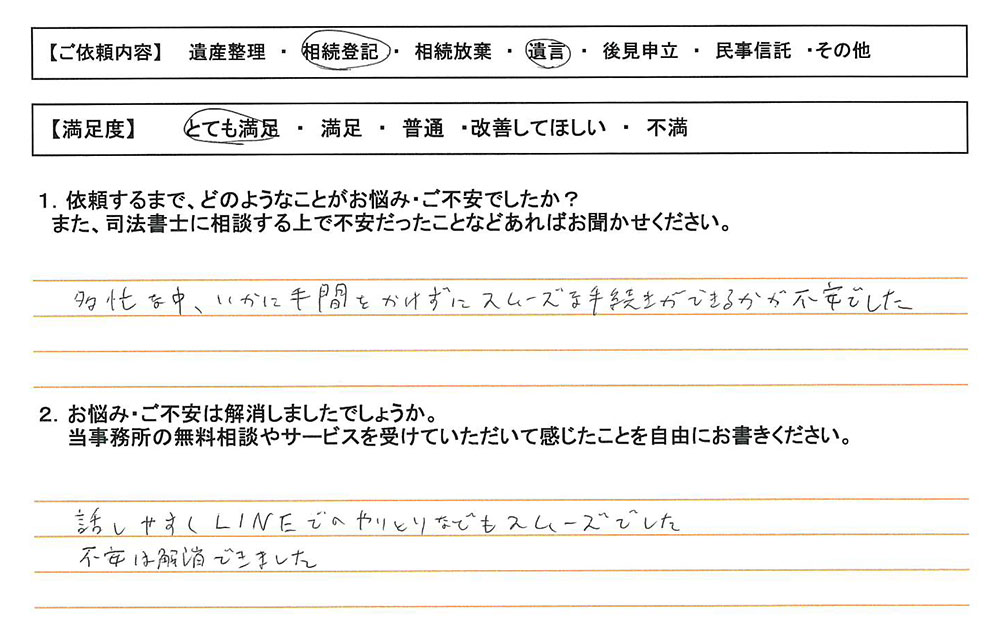 【ご依頼内容】 遺産整理 ・ 相続登記 ・ 相続放棄 ・ 遺言 ・ 後見申立 ・ 民事信託 ・その他
【満足度】 とても満足 ・ 満足 ・ 普通 ・改善してほしい ・ 不満
1. 依頼するまで、どのようなことがお悩み・ご不安でしたか？
また、司法書士に相談する上で不安だったことなどあればお聞かせください。
多忙な中、いかに手間をかけずにスムーズな手続きができるかが不安でした
2. お悩み・ご不安は解消しましたでしょうか。
当事務所の無料相談やサービスを受けていただいて感じたことを自由にお書きください。
話しやすくLINEでのやりとりなでもスムーズでした
不安は解消できました